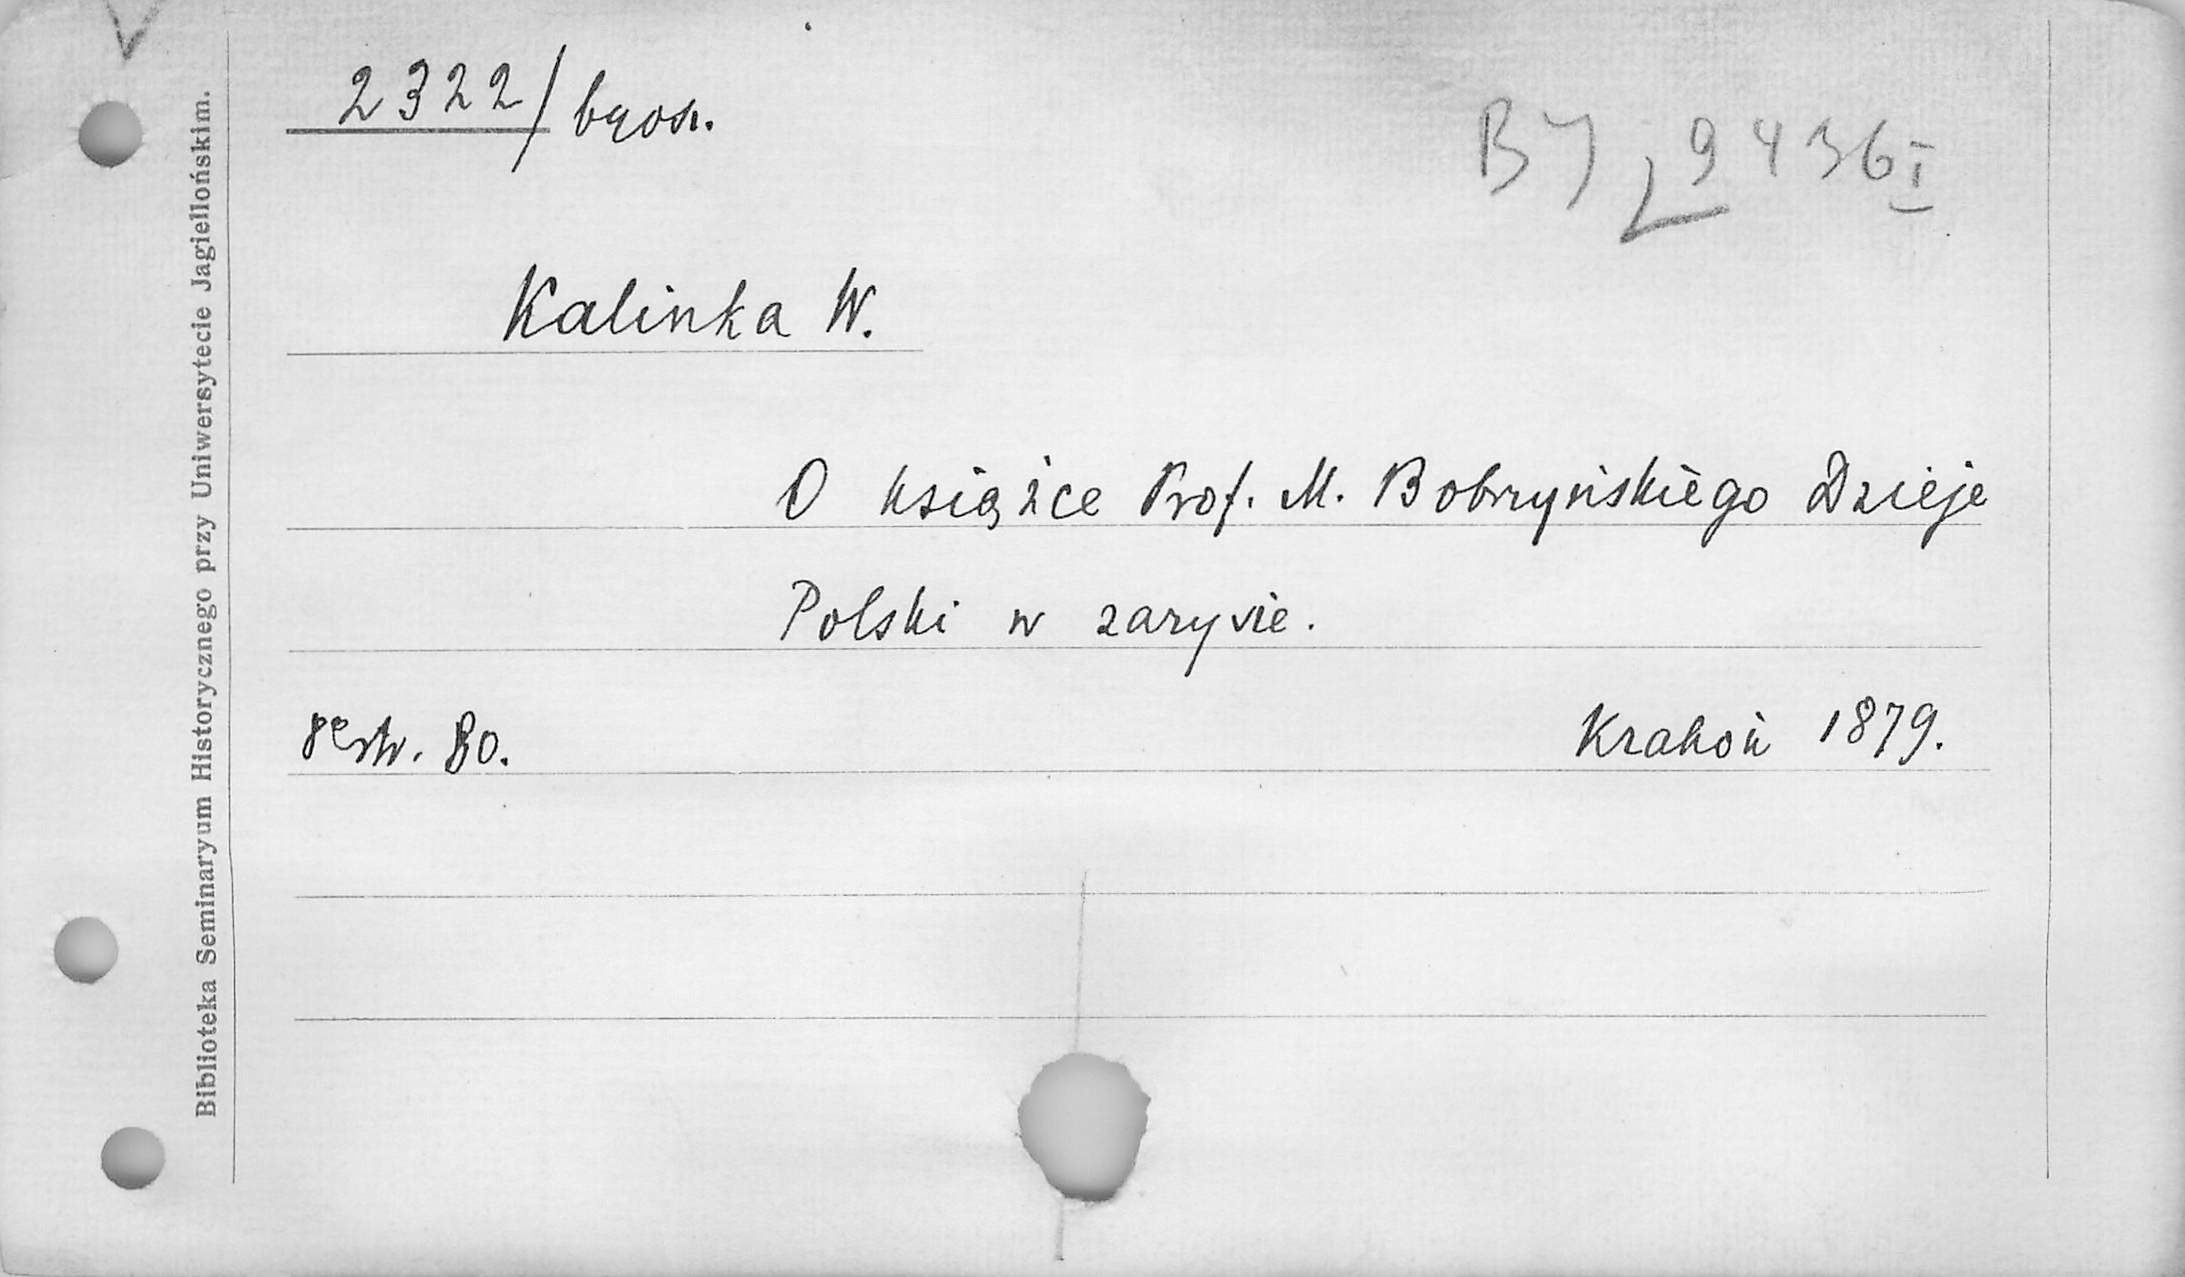 2322/brosz.
BJ 29436 I
Kalinka W.
O książce Prof. M. Bobrzyńskiego Dzieje
Polski w zarysie.
8º str. 80.
Kraków 1879.
Biblioteka Seminaryum Historycznego przy Uniwersytecie Jagiellońskim.